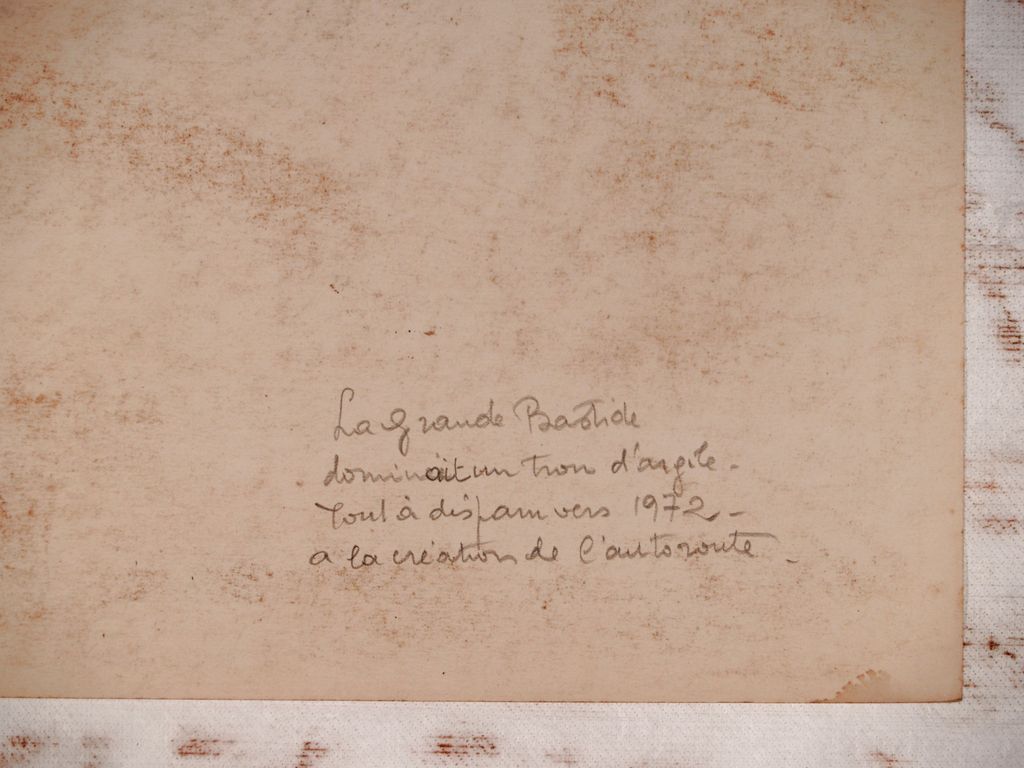 La Grande Bastide
dominait un trou d'argile -
Tout à disparu vers 1972 -
a la création de l'autoroute .